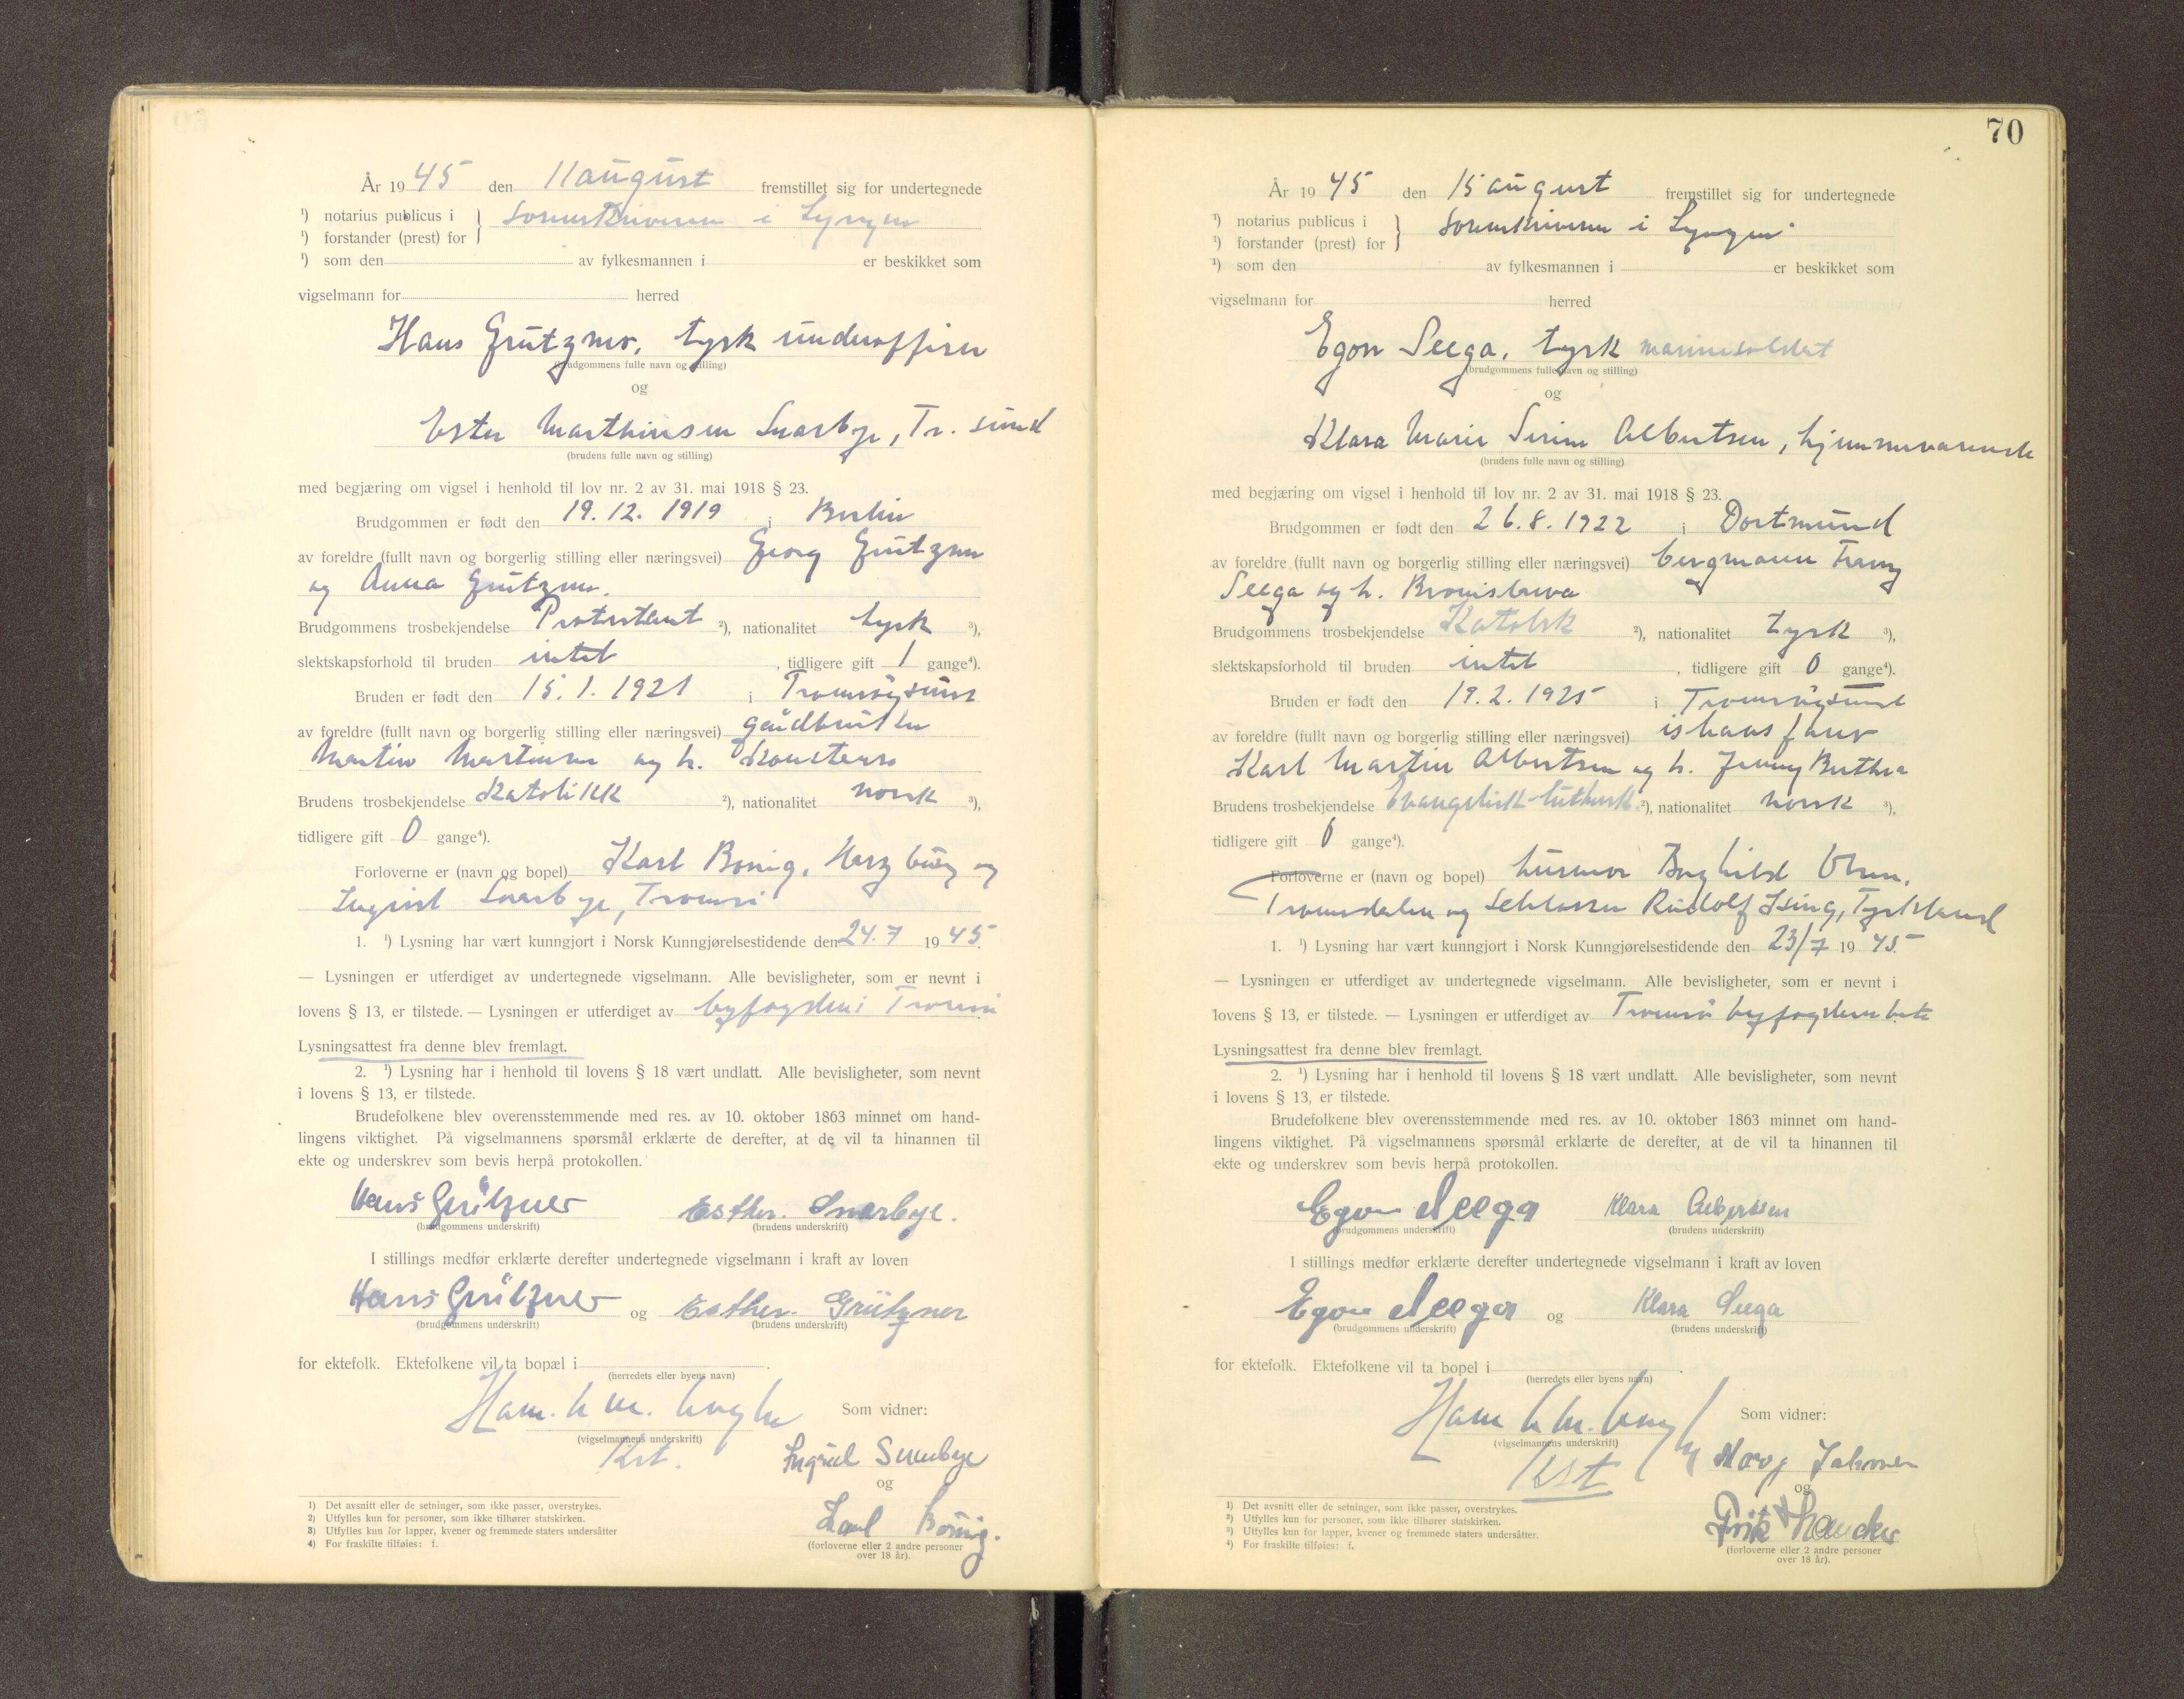 År 1945 den 11 august fremstillet sig for undertegnede
¹) notarius publicus i } sorenskriveren i Lyngen
¹) forstander (prest) for
¹) som den av fylkesmannen i er beskikket som
vigselmann for herred
Hans Grützner, tysk underoffiser
(brudgommens fulle navn og stilling)
og
Ester Marthinsen Snarbye, Tr. sund
(brudens fulle navn og stilling)
med begjæring om vigsel i henhold til lov nr. 2 av 31. mai 1918 § 23.
Brudgommen er født den 19. 12. 1919 i Berlin
av foreldre (fullt navn og borgerlig stilling eller næringsvei) Georg Grützner
og Anna Grützner.
Brudgommens trosbekjendelse Protestant ²), nationalitet tysk ³),
slektskapsforhold til bruden intet, tidligere gift 1 gange⁴).
Bruden er født den 15. 1. 1921 i Tromsøysund
av foreldre (fullt navn og borgerlig stilling eller næringsvei) gårdbruker
Martin Martinsen og h. Konstanse
Brudens trosbekjendelse Katolikk ²), nationalitet norsk ³),
tidligere gift 0 gange⁴).
Forloverne er (navn og bopel) Karl Bonig, Harzburg og
Ingrid Snarbye, Tromsø
1. ¹) Lysning har vært kunngjort i Norsk Kunngjørelsestidende den 24. 7 1945.
— Lysningen er utferdiget av undertegnede vigselmann. Alle bevisligheter, som er nevnt i
lovens § 13, er tilstede. — Lysningen er utferdiget av byfogden i Tromsø
Lysningsattest fra denne blev fremlagt.
2. ¹) Lysning har i henhold til lovens § 18 vært undlatt. Alle bevisligheter, som nevnt
i lovens § 13, er tilstede.
Brudefolkene blev overensstemmende med res. av 10. oktober 1863 minnet om hand-
lingens viktighet. På vigselmannens spørsmål erklærte de derefter, at de vil ta hinannen til
ekte og underskrev som bevis herpå protokollen.
Hans Grützner Esther Snarbye.
(brudgommens underskrift) (brudens underskrift)
I stillings medfør erklærte derefter undertegnede vigselmann i kraft av loven
Hans Grützner og Esther Grützner
(brudgommens underskrift) (brudens underskrift)
for ektefolk. Ektefolkene vil ta bopæl i .
(herredets eller byens navn)
Som vidner:
(vigselmannens underskrift)
Kst.
Ingrid Snarbye
og
Karl Bönig.
(forloverne eller 2 andre personer
over 18 år).
1) Det avsnitt eller de setninger, som ikke passer, overstrykes.
2) Utfylles kun for personer, som ikke tilhører statskirken.
3) Utfylles kun for lapper, kvener og fremmede staters undersåtter
4) For fraskilte tilføies: f.
70
År 1945 den 15 august fremstillet sig for undertegnede
¹) notarius publicus i } sorenskriveren i Lyngen
¹) forstander (prest) for
¹) som den av fylkesmannen i er beskikket som
vigselmann for herred
Egon Seega, tysk marinesoldat
(brudgommens fulle navn og stilling)
og
Klara Marie Serine Albertsen, hjemmeværende
(brudens fulle navn og stilling)
med begjæring om vigsel i henhold til lov nr. 2 av 31. mai 1918 § 23.
Brudgommen er født den 26. 8. 1922 i Dortmund
av foreldre (fullt navn og borgerlig stilling eller næringsvei) bergmann Franz
Seega og h. Bronislawa
Brudgommens trosbekjendelse Katolsk ²), nationalitet tysk ³),
slektskapsforhold til bruden intet, tidligere gift 0 gange⁴).
Bruden er født den 19. 2. 1925 i Tromsøysund
av foreldre (fullt navn og borgerlig stilling eller næringsvei) ishavsfarer
Karl Martin Albertsen og h. Jenny Berthea
Brudens trosbekjendelse Evangelisk-luthersk ²), nationalitet norsk ³),
tidligere gift 0 gange⁴).
Forloverne er (navn og bopel) husmor Borghild Olsen,
Tromsdalen og Schlosser Rudolf Ising, Tyskland
1. ¹) Lysning har vært kunngjort i Norsk Kunngjørelsestidende den 23/7 1945.
— Lysningen er utferdiget av undertegnede vigselmann. Alle bevisligheter, som er nevnt i
lovens § 13, er tilstede. — Lysningen er utferdiget av Tromsø byfogdembete
Lysningsattest fra denne blev fremlagt.
2. ¹) Lysning har i henhold til lovens § 18 vært undlatt. Alle bevisligheter, som nevnt
i lovens § 13, er tilstede.
Brudefolkene blev overensstemmende med res. av 10. oktober 1863 minnet om hand-
lingens viktighet. På vigselmannens spørsmål erklærte de derefter, at de vil ta hinannen til
ekte og underskrev som bevis herpå protokollen.
Egon Seega Klara Albertsen
(brudgommens underskrift) (brudens underskrift)
I stillings medfør erklærte derefter undertegnede vigselmann i kraft av loven
Egon Seega og Klara Seega
(brudgommens underskrift) (brudens underskrift)
for ektefolk. Ektefolkene vil ta bopel i .
(herredets eller byens navn)
Som vidner:
(vigselmannens underskrift)
Kst
og
(forloverne eller 2 andre personer
over 18 år).
1) Det avsnitt eller de setninger, som ikke passer, overstrykes.
2) Utfylles kun for personer, som ikke tilhører statskirken.
3) Utfylles kun for lapper, kvener og fremmede staters undersåtter.
4) For fraskilte tilføies: f.